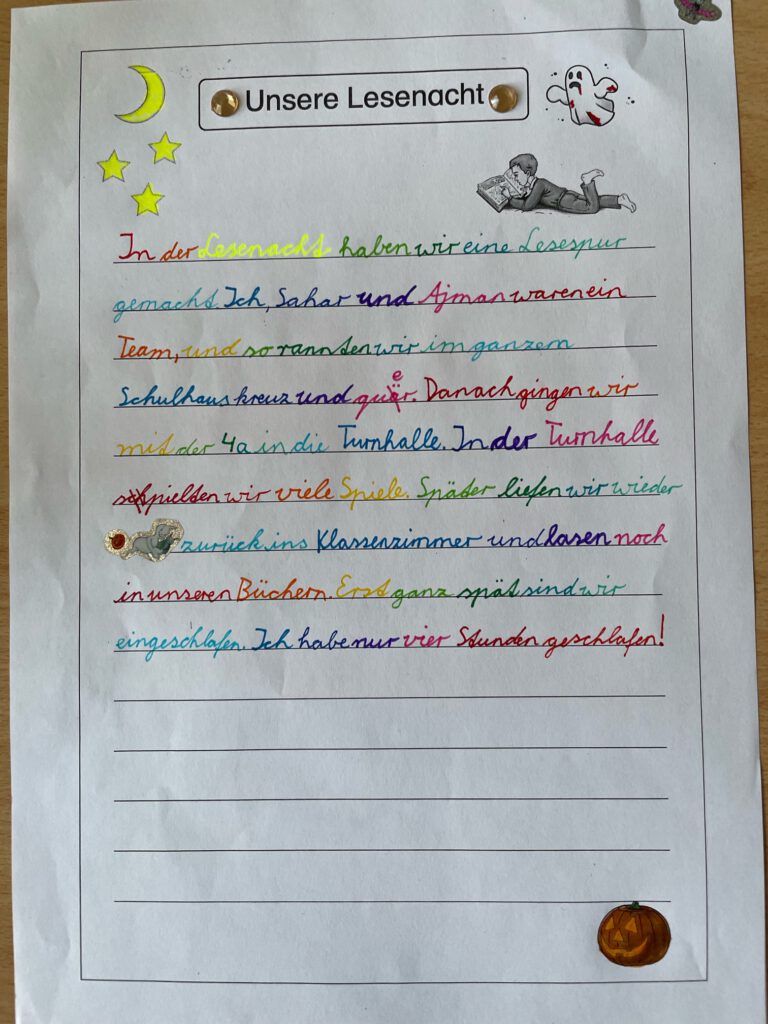 Unsere Lesenacht
In der Lesenacht haben wir eine Lesespur
gemacht. Ich, Sahar und Ajman waren ein
Team, und so rannten wir im ganzem
Schulhaus kreuz und quer. Danach gingen wir
mit der 4a in die Turnhalle. In der Turnhalle
spielten wir viele Spiele. Später liefen wir wieder
zurück ins Klassenzimmer und lasen noch
in unseren Büchern. Erst ganz spät sind wir
eingeschlafen. Ich habe nur vier Stunden geschlafen!